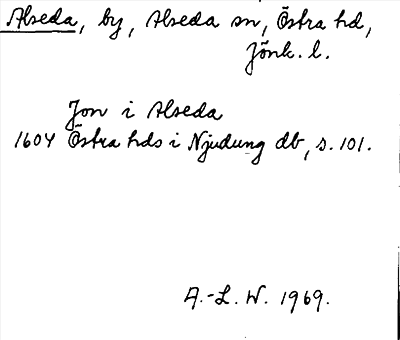 Alseda, by, Alseda sn, Östra hd,
Jönk. l.
Jon i Alseda
1604 Östra hds i Njudung db, s. 101.
A.-L. W. 1969.